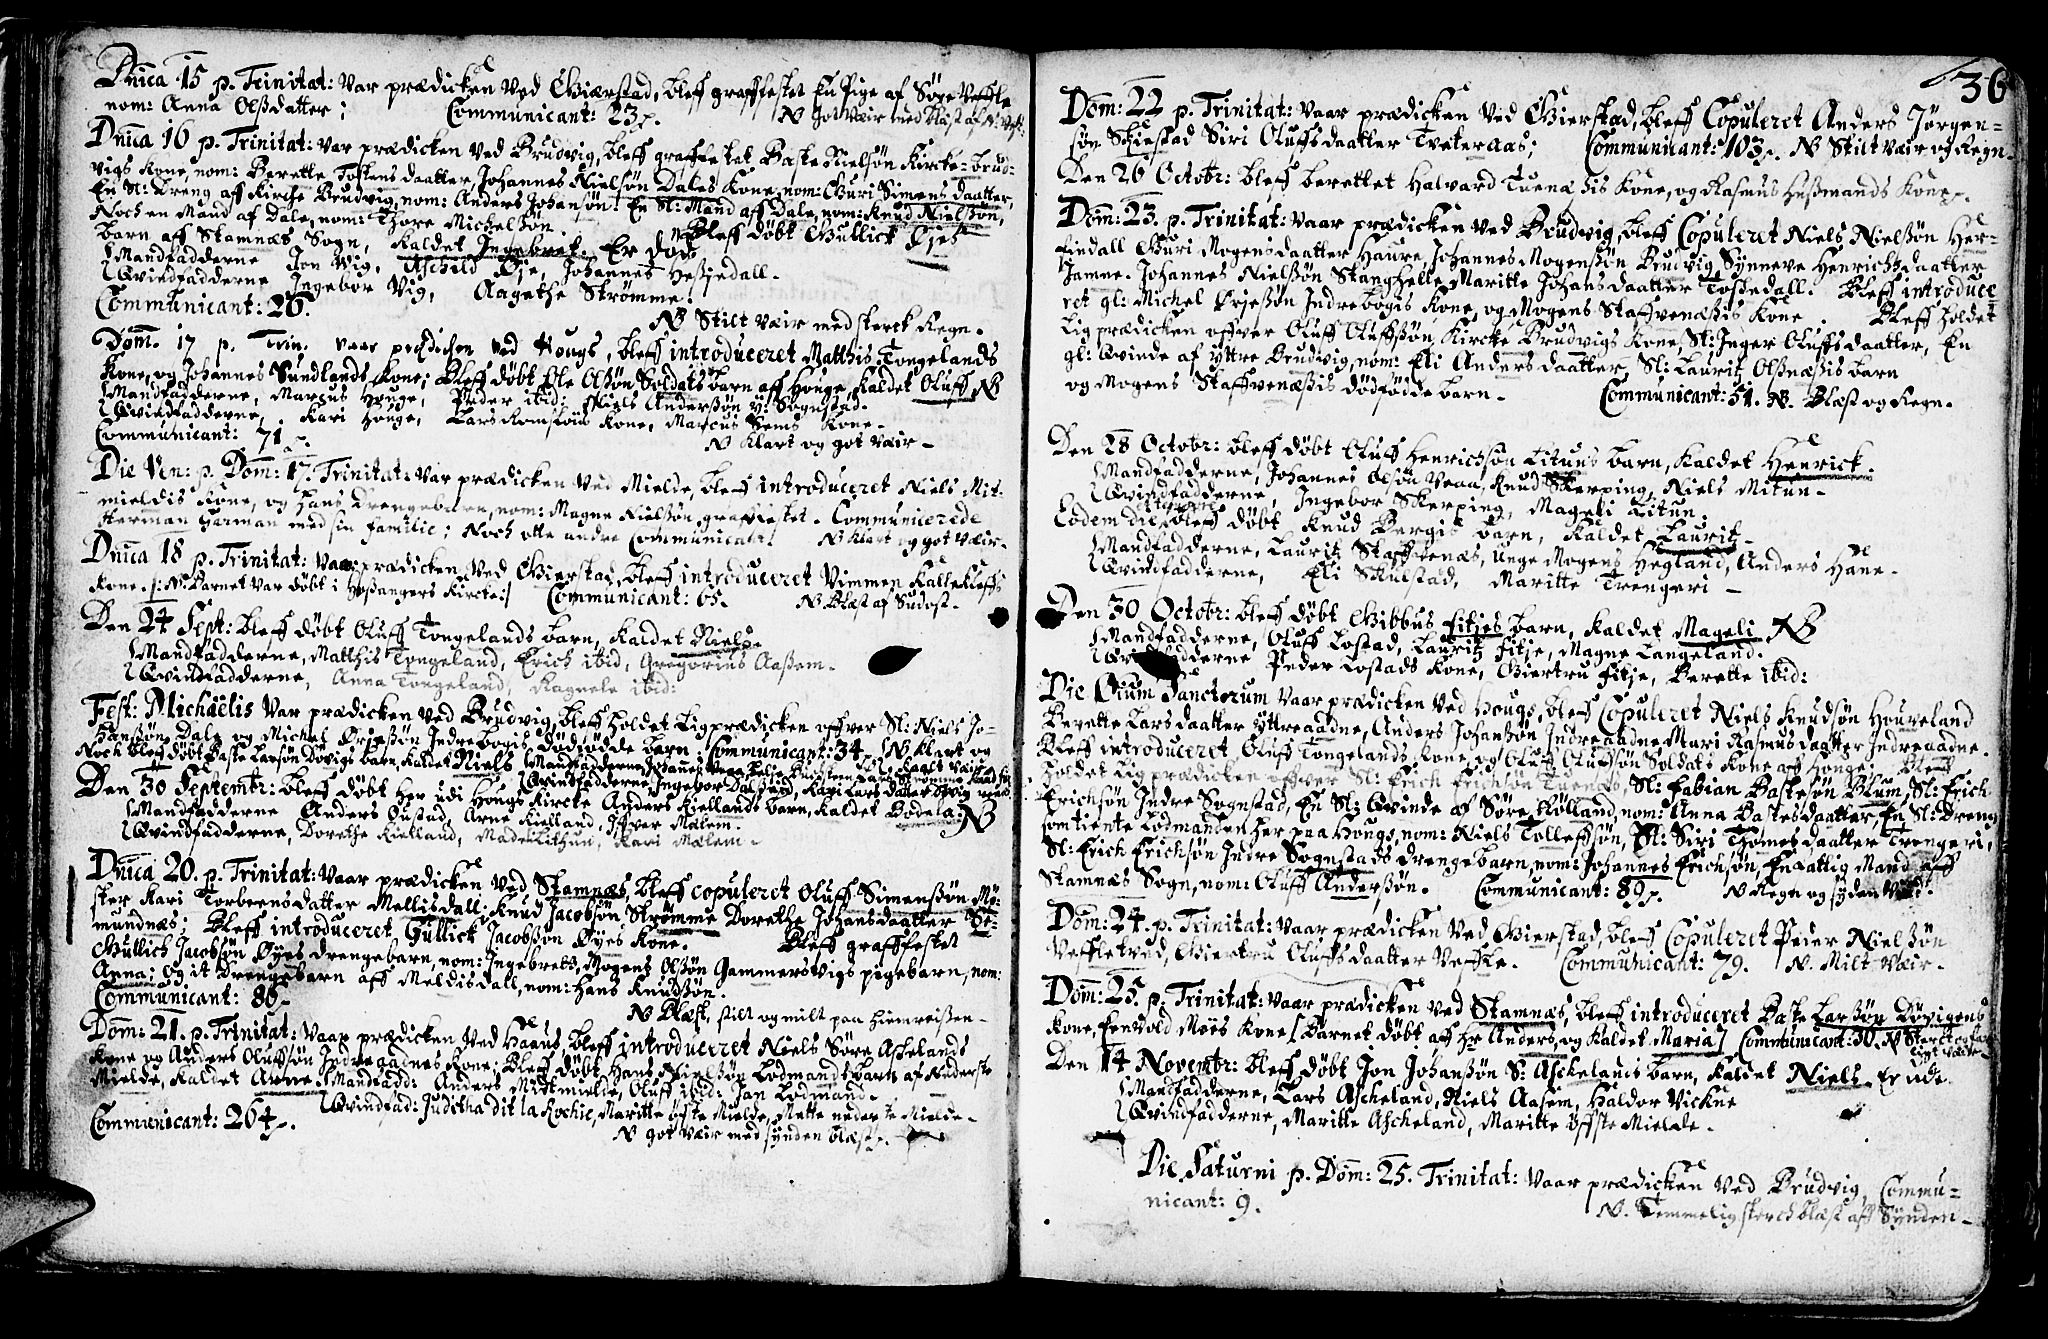 Dnica 15 p. Trinitat: Var prædicken Ved Gierstad, bleff graffestet En Pige af Søre Veffle
nom: Anna Olßdatter; Communicant: 23. NB Got Vær med blæst af N. Vest.
Dnica 16 p. Trinitat: Var prædicken Ved Brudvig, bleff graffestet Baste Nielsøn Kircke-brud-
vigs Kone, nom: Berette Tostens daatter, Johannes Nielsøn Dales Kone, nom: Guri Simens daatter,
En Sl: Dreng aff Kirche Brudvig, nom: Anders Johansøn. En Sl: Mand aff Dale, nom: Knud Nielßøn,
Noch en Mand af Dale, nom: Thore Michelsøn. Bleff døbt Gullick Øjes
barn aff Stamnæs Sogn, Kaldet Ingebret. Er død
Mandfadderne Jon Vig, Aschild Øje, Johannes Heßjedall.
Qvindfadderne Ingebor Vig, Aagathe Strømme.
Communicant: 26. NB Stilt Vær med sterck Regn.
Dom. 17 p. Trin. vaar prædichen ved Hougs, bleff introduceret Matthis Tongelands
Kone, og Johannes Sundlands Kone; Bleff døbt Ole Olßøn Soldats barn aff Houge, Kaldet Oluff NB
Mandfadderne, Marcus Houge, Peder ibid: Niels Anderßøn Y: Sognstad.
Qvindfadderne, Kari Houge, Lars Romsloes Kone, Marcus Rems Kone.
Communicant: 71. NB Klart og got Vær.
Die Ven: p. Dom: 17. Trinitat: Var prædicken Ved Mielde, bleff introduceret Niels Mit-
mieldis Kone, og Hans Drengebarn, nom: Magne Nielßøn graffestet. Communicerede
Herman Garman med sin familie; Noch otte andre Communicant. NB Klart og got Vær.
Dnica 18 p. Trinitat: Vaar prædicken Ved Gierstad, bleff introduceret Vimmen Kallekleffs
Kone. /: NB Barnet Var døbt i Hoßangers Kircke:/ Communicant: 65. NB Blæst af Sudost.
Den 24 Sept: bleff døbt Oluff Tongelands barn, Kaldet Niels.
Mandfadderne, Matthis Tongeland, Erich ibid, Gregorius Aaßem.
Qvindfadderne, Anna Tongeland, Ragnele ibid:
Fest: Michaëlis Var prædicken Ved Brudvig, bleff holdet Ligprædicken offver Sl: Niels Jo-
hanßøn Dale og Michel Ørjeßøn Indre bogis dødfødde barn; Communicant: 34. NB Klart og
Noch bleff døbt Baste Larsøn Døvigs barn, Kaldet Niels Mandfadderne
Den 30 Septembr: bleff døbt her udi Hougs Kircke Anders Kiellands barn, Kaldet Bodela: NB
Mandfadderne Anders Oustad, Arne Kielland, Iffver Mælem.
Qvindfadderne, Dorethe Kielland, Made Lithun, Kari Mælem.
Dnica 20. p. Trinitat: Vaar prædicken Ved Stamnæs, bleff copuleret Oluff Simensøn Mø-
ster Kari Torbernsdatter Mellisdall; Knud Jacobsøn Strømme Dorethe Johansdaatter St-
mundnæs; Bleff introduceret Gullick Jacobßøn Øyes Kone. Bleff graffestet
Gullich Jacobßøn Øyes drengebarn, nom: Ingebrett, Mogens Olßøn Gammersvigs pigebarn, nom:
Anna; Og it drengebarn aff Meldisdall, nom: Hans Knudßøn.
Communicant: 86. NB Blæst, stilt og milt paa hiemreißen.
Dom: 21. p. Trinitat: Vaar prædicken Ved Haaus, bleff introduceret Niels Søre Aschelands
Kone og Anders Olufsøn Indregaldnes Kone; Bleff døbt Hans Nielßøn Lodmands barn af Nederste
Mielde, Kaldet Arne. Mandfadd: Anders Mitmielde, Oluff ibid: Jan Lodmand.
Qvindfad: Juditha dit la Rochie, Maritte øfste Mielde, Mette nederste Mielde.
Communicant: 264. NB got Vær med synden blæst.
36
Dom: 22 p. Trinitat: Vaar prædicken Ved Gierstad, bleff Copuleret Anders Jørgen-
søn Skiestad Siri Oluffsdaatter Tveteraas; Communicant: 103. NB Stilt Vær og Regn.
Den 26 Octobr: bleff berettet Halvard Tuenæßis Kone, og Rasmus Hußmands Kone.
Dom: 23. p. Trinitat: Vaar prædicken Ved Brudvig, bleff Copuleret Niels Nielßøn Her-
findall Guri Mogensdaatter Haure, Johannes Mogenßøn Brudvig Synneve Henrichsdaatter
Jamne. Johannes Nielßøn Stanghelle Maritte Johansdaatter Toßedall. Bleff introduce-
ret gl: Michel Ørjeßøn Indre bogis Kone, og Mogens Staffvenæßis Kone. Bleff holdet
Lig prædicken offver Oluff Oluffßøn, Kircke Brudvigs Kone, Sl: Inger Oluffsdaatter, En
gl: Qvinde af yttre Brudvig, nom: Eli Andersdaatter, Sl: Lauritz Olßnæßis barn
og Mogens Staffvenæßis dødfødde barn. Communicant: 51. NB. Blæst og Regn.
Den 28 Octobr: bleff døbt Oluff Henrichsøn Lituns barn, Kaldet Henrick.
Mandfadderne, Johannes Olsøn Veaa, Knud Skerping, Niels Mitun.
Qvindfadderne, Ingebor Skerping, Mageli Litun.
Eodem die bleff døbt Knud Bergis barn, Kaldet Lauritz.
Mandfadderne, Lauritz Staffvenæs, Unge Mogens Hegland, Anders Hane.
Qvindfadderne, Eli Skulstad, Maritte Trengeri.
Den 30 Octobr: bleff døbt Gibbus Fitjes barn, Kaldet Mageli NB
Mandfadderne, Oluff Lostad, Lauritz Fitje, Magne Langeland.
Qvindfadderne Peder Lostads Kone, Giertru Fitje, Berette ibid:
Die Oium Sanctorum Vaar prædicken Ved Hougs, bleff Copuleret Niels Knudsøn Houveland
Berette Larsdaatter Yttreaadne, Anders Johanßøn Indreaadne Mari Rasmusdaatter Indreaadne.
Bleff introduceret Oluff Tongelands Kone, og Oluff Olufsøn Soldats Kone aff Houge. Bleff
holdet Lig prædicken offver Sl: Erich Erichsøn Tuenæs, Sl: Fabian Bastesøn Blum, Sl: Erich
Erichsøn Indre Sognstad, En Sl: Qvinde af Søre Kølland, nom: Anna Bastesdaatter, En Sl: Dreng
som tiente Lodmanden her paa Hougs, nom: Niels Tolleffsøn, Sl: Siri Thomesdaatter Trengeri,
Sl: Erich Erichsøn Indre Sognstads drengebarn, nom: Johannes Erichsøn, En aattig Mand aff
Stamnæs Sogn, nom: Oluff Anderßøn. Communicant: 89. NB Regn og synden Vest.
Dom: 24. p. Trinitat: Vaar prædicken Ved Gierstad, bleff Copuleret Peder Nielßøn
Veffletved, Giertru Oluffsdaatter Veffle. Communicant: 79. N. Milt Vær.
Dom: 25. p. Trinitat: Vaar prædicken Ved Stamnæs, bleff introduceret Baste Larsøn Døvigens
Kone, Eenvold Møes Kone / Barnet døbt aff Hr Anders, og Kaldet Maria / Communicant: 30. NB Sterck
Den 14 Novembr: bleff døbt Jon Johanßøn S: Aschelands barn, Kaldet Niels. Er ude.
Mandfadderne, Lars Ascheland, Niels Aasem, Haldor Vickne
Qvindfadderne, Maritte Ascheland, Maritte Øffste Mielde.
Die Saturni p. Dom: 25. Trinitat: Vaar prædicken Ved Brudvig, Commu-
nicant: 9. N. Temmelig sterch blæst aff Synden.